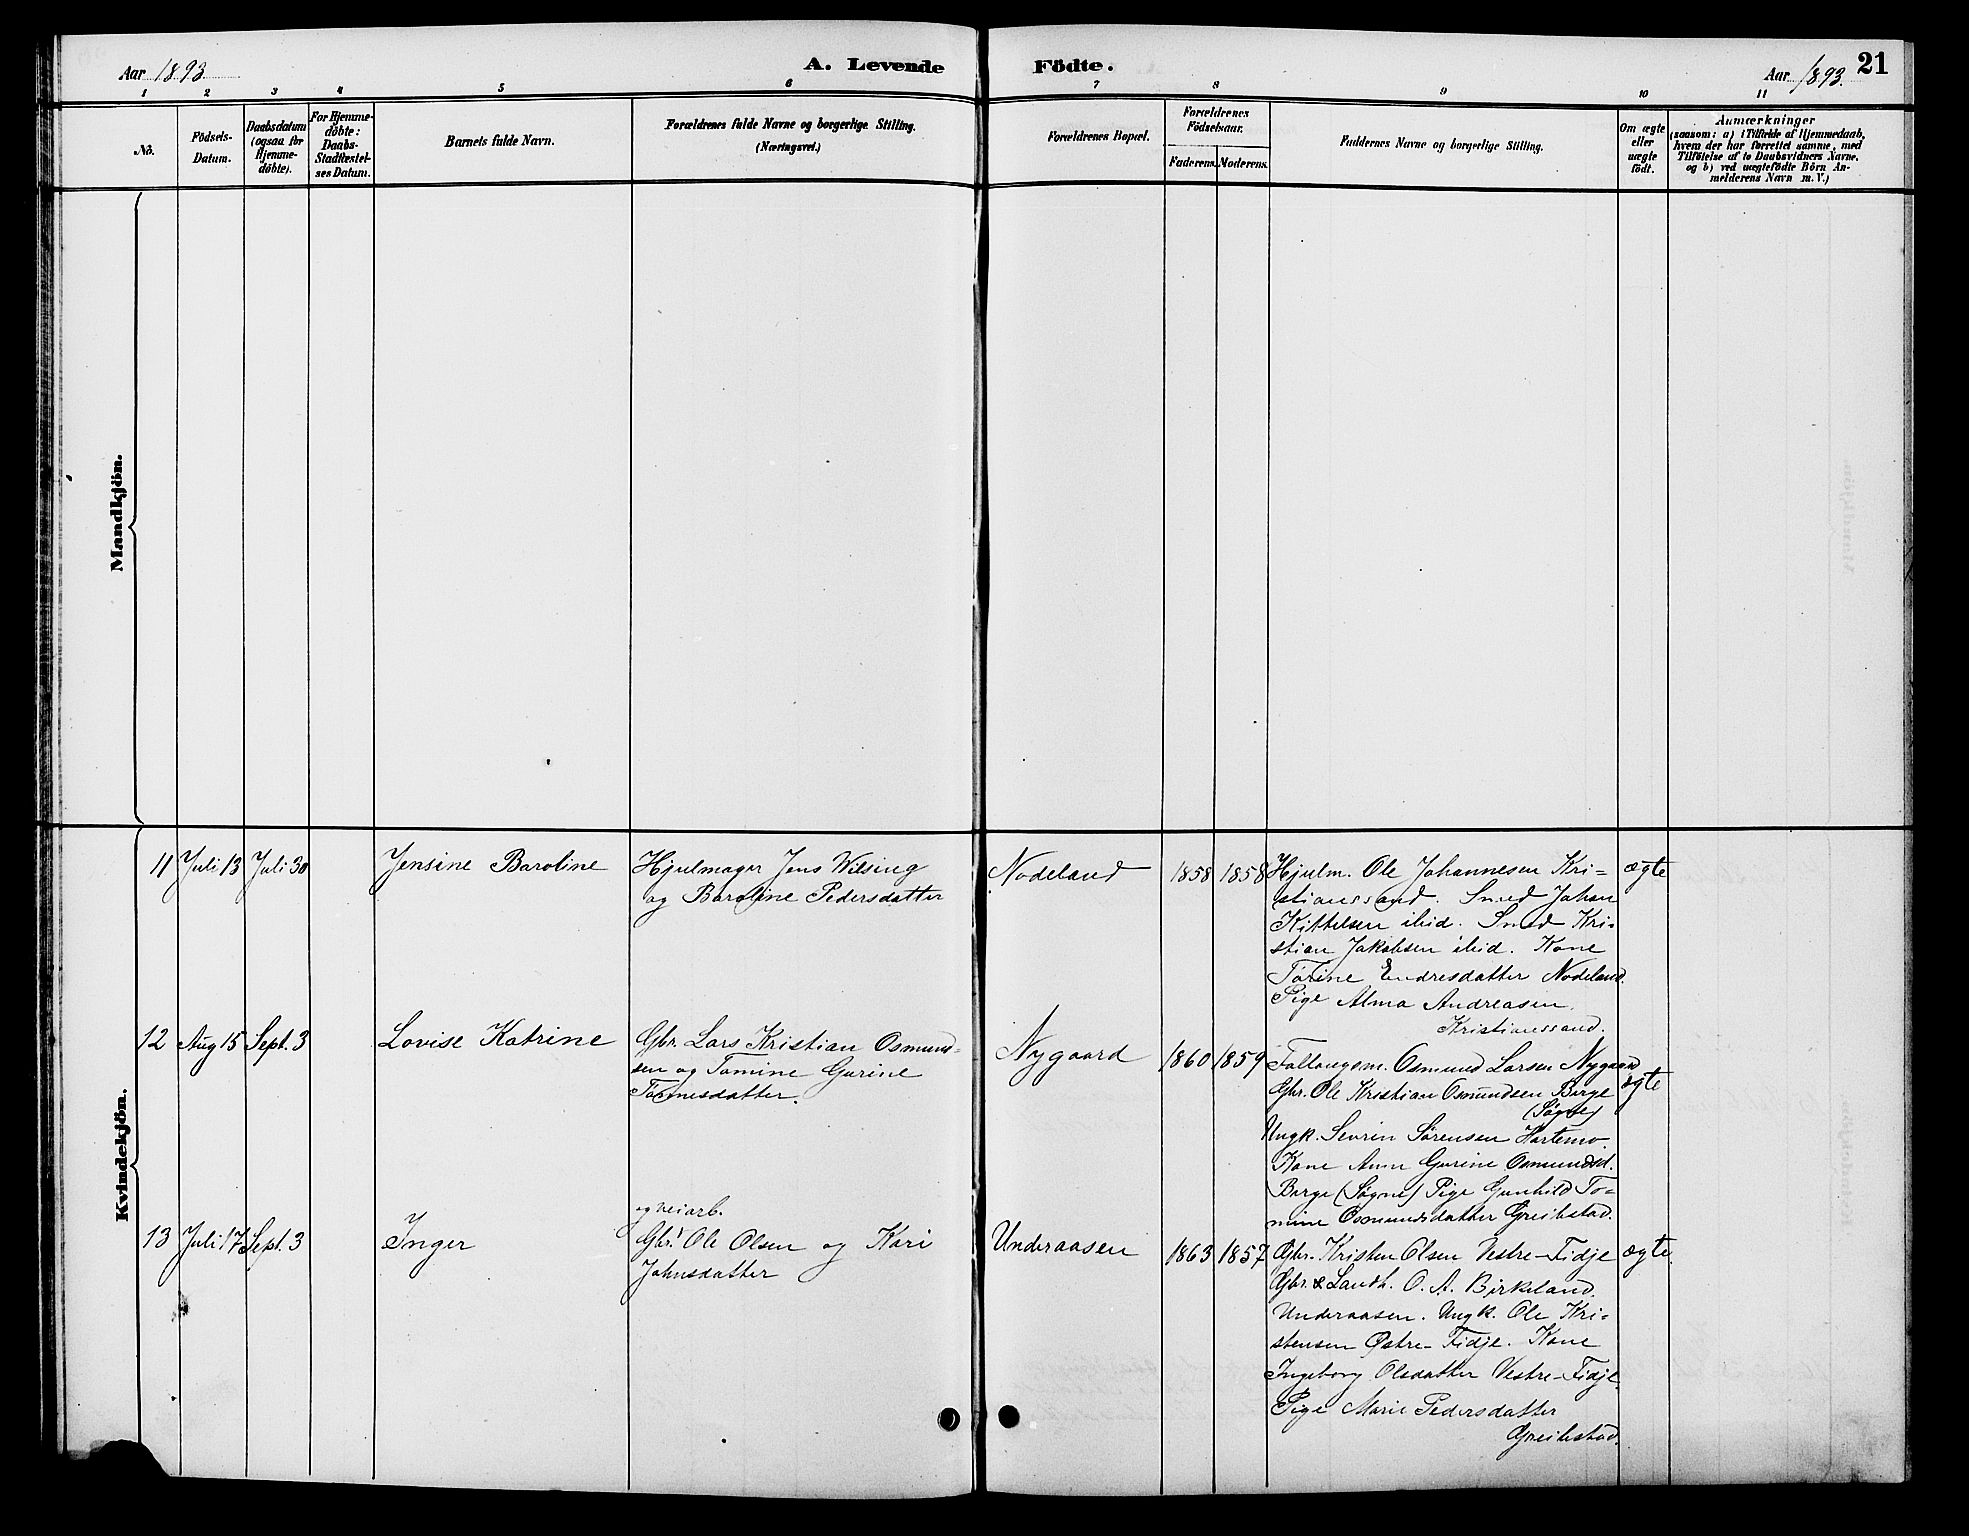 Aar 1893
A. Levende Födte.
Aar 1893. 21
1 2 3 4 5 6 7 8 9 10 11
No.
Födsels-
Datum.
Daabsdatum
(ogsaa for
Hjemme-
döbte).
For Hjemme-
döbte:
Daabs-
Stadfæstel-
ses Datum.
Barnets fulde Navn.
Forældrenes fulde Navne og borgerlige Stilling.
(Næringsvei.)
Forældrenes Bopæl.
Forældrenes
Födselsaar.
Faderens. Moderens.
Faddernes Navne og borgerlige Stilling.
Om ægte
eller
uægte
födt.
Anmærkninger
(saasom: a) i Tilfælde af Hjemmedaab,
hvem der har forrettet samme, med
Tilföielse af to Daabsvidners Navne,
og b) ved uægtefödte Börn An-
melderens Navn m. V.)
Mandkjön.
Kvindekjön.
11 Juli 13 Juli 30
Jensine Baroline
Hjulmager Jens Wilsing
og Baroline Pedersdatter
Nodeland
1858 1858
Hjulm. Ole Johannesen Kri-
stianssand. Smed Johan
Kittelsen ibid. Smed Kri-
stian Jakobsen ibid. Kone
Torine Endresdatter Nodeland.
Pige Alma Andreasen.
Kristianssand.
ægte
12 Aug 15 Sept. 3
Lovise Katrine
Gbr. Lars Kristian Osmund-
sen og Tomine Gurine
Tomesdatter.
Nygaard
1860 1859
Foltougsm. Osmund Larsen Nygaard
Gbr. Ole Kristian Osmundsen Berge
(Søgne)
Ungk. Sevrin Sørensen Hortemo.
Kone Anne Gurine Osmundsd.
Berge (Søgne) Pige Gunhild To-
mine Osmundsdatter Greibstad.
ægte
13 Juli 17 Sept. 3
Inger
og veiarb.
Gbr. Ole Olsen og Kari
Johnsdatter
Underaasen
1863 1857
Gbr. Kristen Olsen Vestre-Fidje
Gbr. & Landh. O. A. Birkeland.
Underaasen. Ungk. Ole Kri-
stensen Østre-Fidje. Kone
Ingeborg Olsdatter Vestre-Fidje.
Pige Marie Pedersdatter
Greibstad.
ægte.